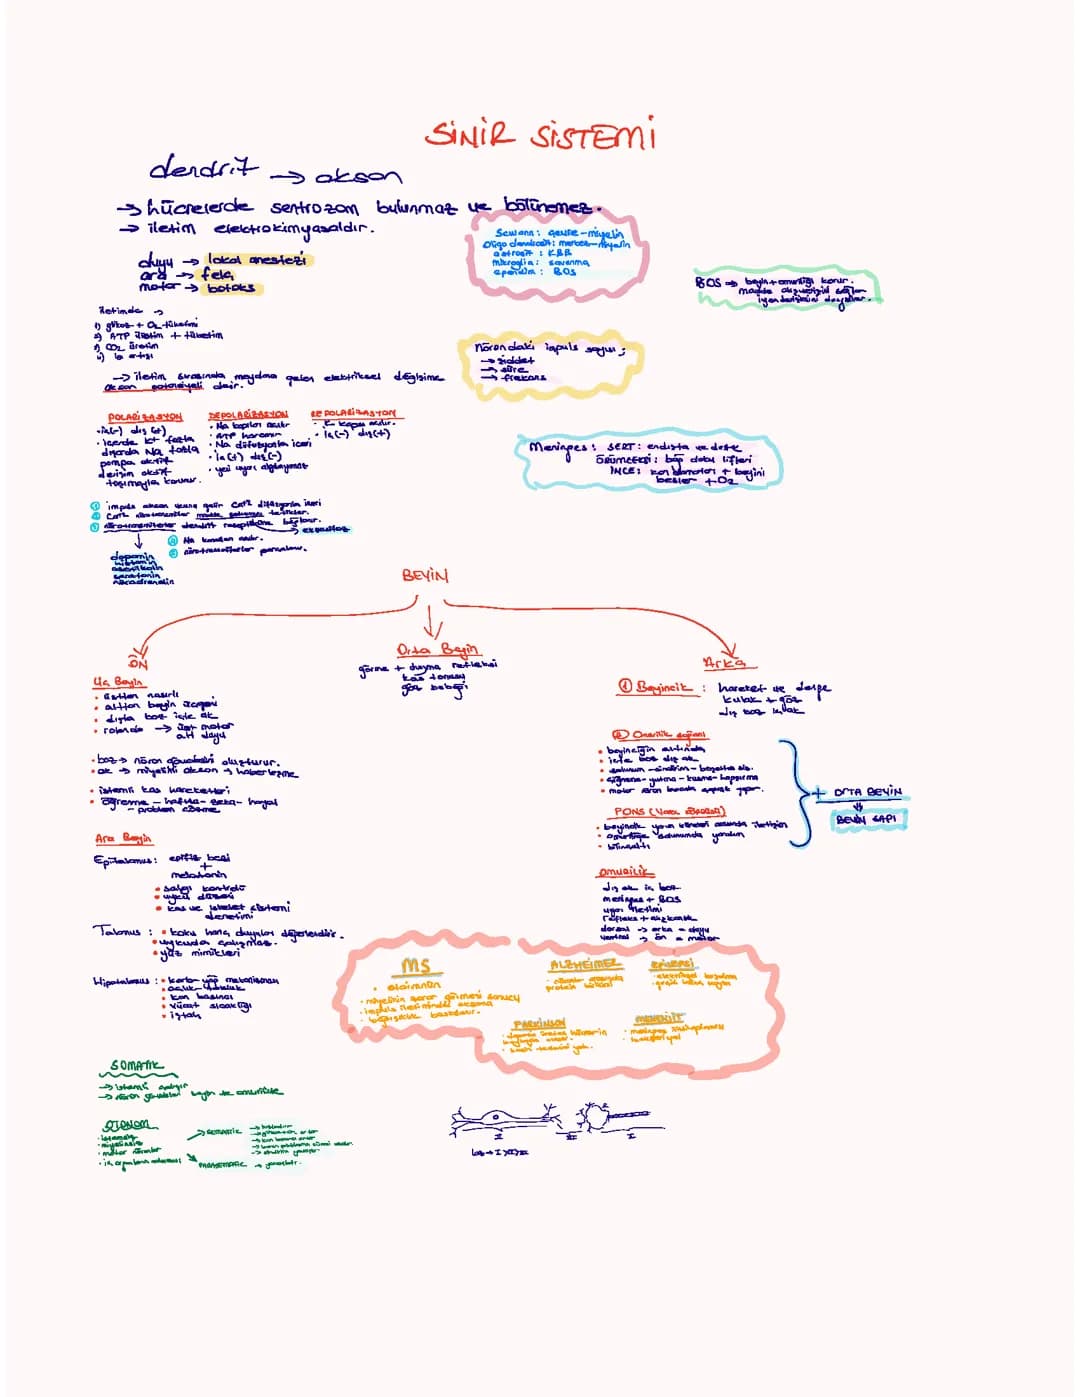 SİNİR SİSTEMİ
dendrit → akson
→ hücrelerde sentrozom bulunmaz ve bölünemez.
→ iletim elektrokimyasaldır.
Schwann: çevre-miyelin
Oligodendrosit: merkez-miyelin
astrosit: KBB
mikroglia: savunma
ependim: BOS
duyu → lokal anestezi
ara → felç
motor → botoks
BOS → beyin + omuriliği korur.
madde alışverişini sağlar
iyon derişimini dengeler.
iletimde →
1) glikoz + O2 tüketimi
2) ATP üretim + tüketim
3) CO2 üretim
4) ısı artışı
Nörondaki impuls sayısı;
→ şiddet
→ süre
→ frekans
→ iletim sırasında meydana gelen elektriksel değişime
aksiyon potansiyeli denir.
POLARİZASYON
• iç(-) dış(+)
• içerde K+ fazla
dışarda Na fazla
pompa aktif
derişim aktif
taşımayla korunur.
DEPOLARİZASYON
• Na kapıları açılır
• ATP harcanır
• Na difüzyonla içeri
• iç(+) dış(-)
• yeni uyarı algılayamaz
REPOLARİZASYON
• K kapısı açılır.
• iç(-) dış(+)
Meninges: SERT: en dışta ve destek
ÖRÜMCEĞİ: bağ doku lifleri
İNCE: kan damarları + beyini
besler +O2
1 impuls akson ucuna gelir Ca+2 difüzyonla içeri
2
3 nörotransmitterler dendrit reseptörüne bağlanır.
→ ekzositoz
4 Na kanalları açılır.
5 nörotransmitterler parçalanır.
dopamin
histamin
asetilkolin
serotonin
nöradrenalin
BEYİN
ÖN
Orta Beyin
görme + duyma refleksi
kas tonusu
göz bebeği
Arka
Uç Beyin
• üstten nasırlı
• alttan beyin üçgeni
• dışta boz içte ak
• rolando → üst motor
alt duyu
• boz → nöron gövdeleri oluşturur.
• ak → miyelinli akson → haberleşme
• istemli kas hareketleri
• öğrenme - hafıza - zeka - hayal
- problem çözme
1 Beyincik: hareket ve denge
kulak + göz
dış boz iç ak
2 Omurilik soğanı
• beyinciğin altında
• içte boz dış ak
• solunum - sindirim - boşaltım sis.
• çiğneme - yutma - kusma - hapşırma
• motor nöron burada çapraz yapar.
+ ORTA BEYİN
⇓
BEYİN SAPI
PONS (Varol köprüsü)
• beyincik yarım küreleri arasında iletişim
Ara Beyin
Epitalamus: epifiz bezi
+
melatonin
• salgı kontrolü
• uyku düzeni
• kas ve iskelet sistemi
denetimi
Talamus: • koku hariç duyuları değerlendirir.
• uykuda çalışmaz.
• yüz mimikleri
Hipotalamus: • karbo-yağ mekanizması
• açlık-tokluk
• kan basıncı
• vücut sıcaklığı
• iştah
omurilik
dış ak iç boz
meninges + BOS
uyarı iletimi
refleks + alışkanlık
dorsal → arka = duyu
ventral → ön = motor
MS
• otoimmün
• miyelinin zarar görmesi sonucu
• impuls iletiminde aksama
• bağışıklık baskılanır.
ALZHEIMER
protein birikimi
EPİLEPSİ
PARKİNSON
MENENJİT
SOMATİK
→ istemli çalışır
→ nöron gövdeleri beyin ve omurilikte
OTONOM
• istemsiz
• miyelinsiz
• motor nöronlar
→ SEMPATİK
→ hızlandırır
→ PARASEMPATİK → yavaşlatır.
I II I